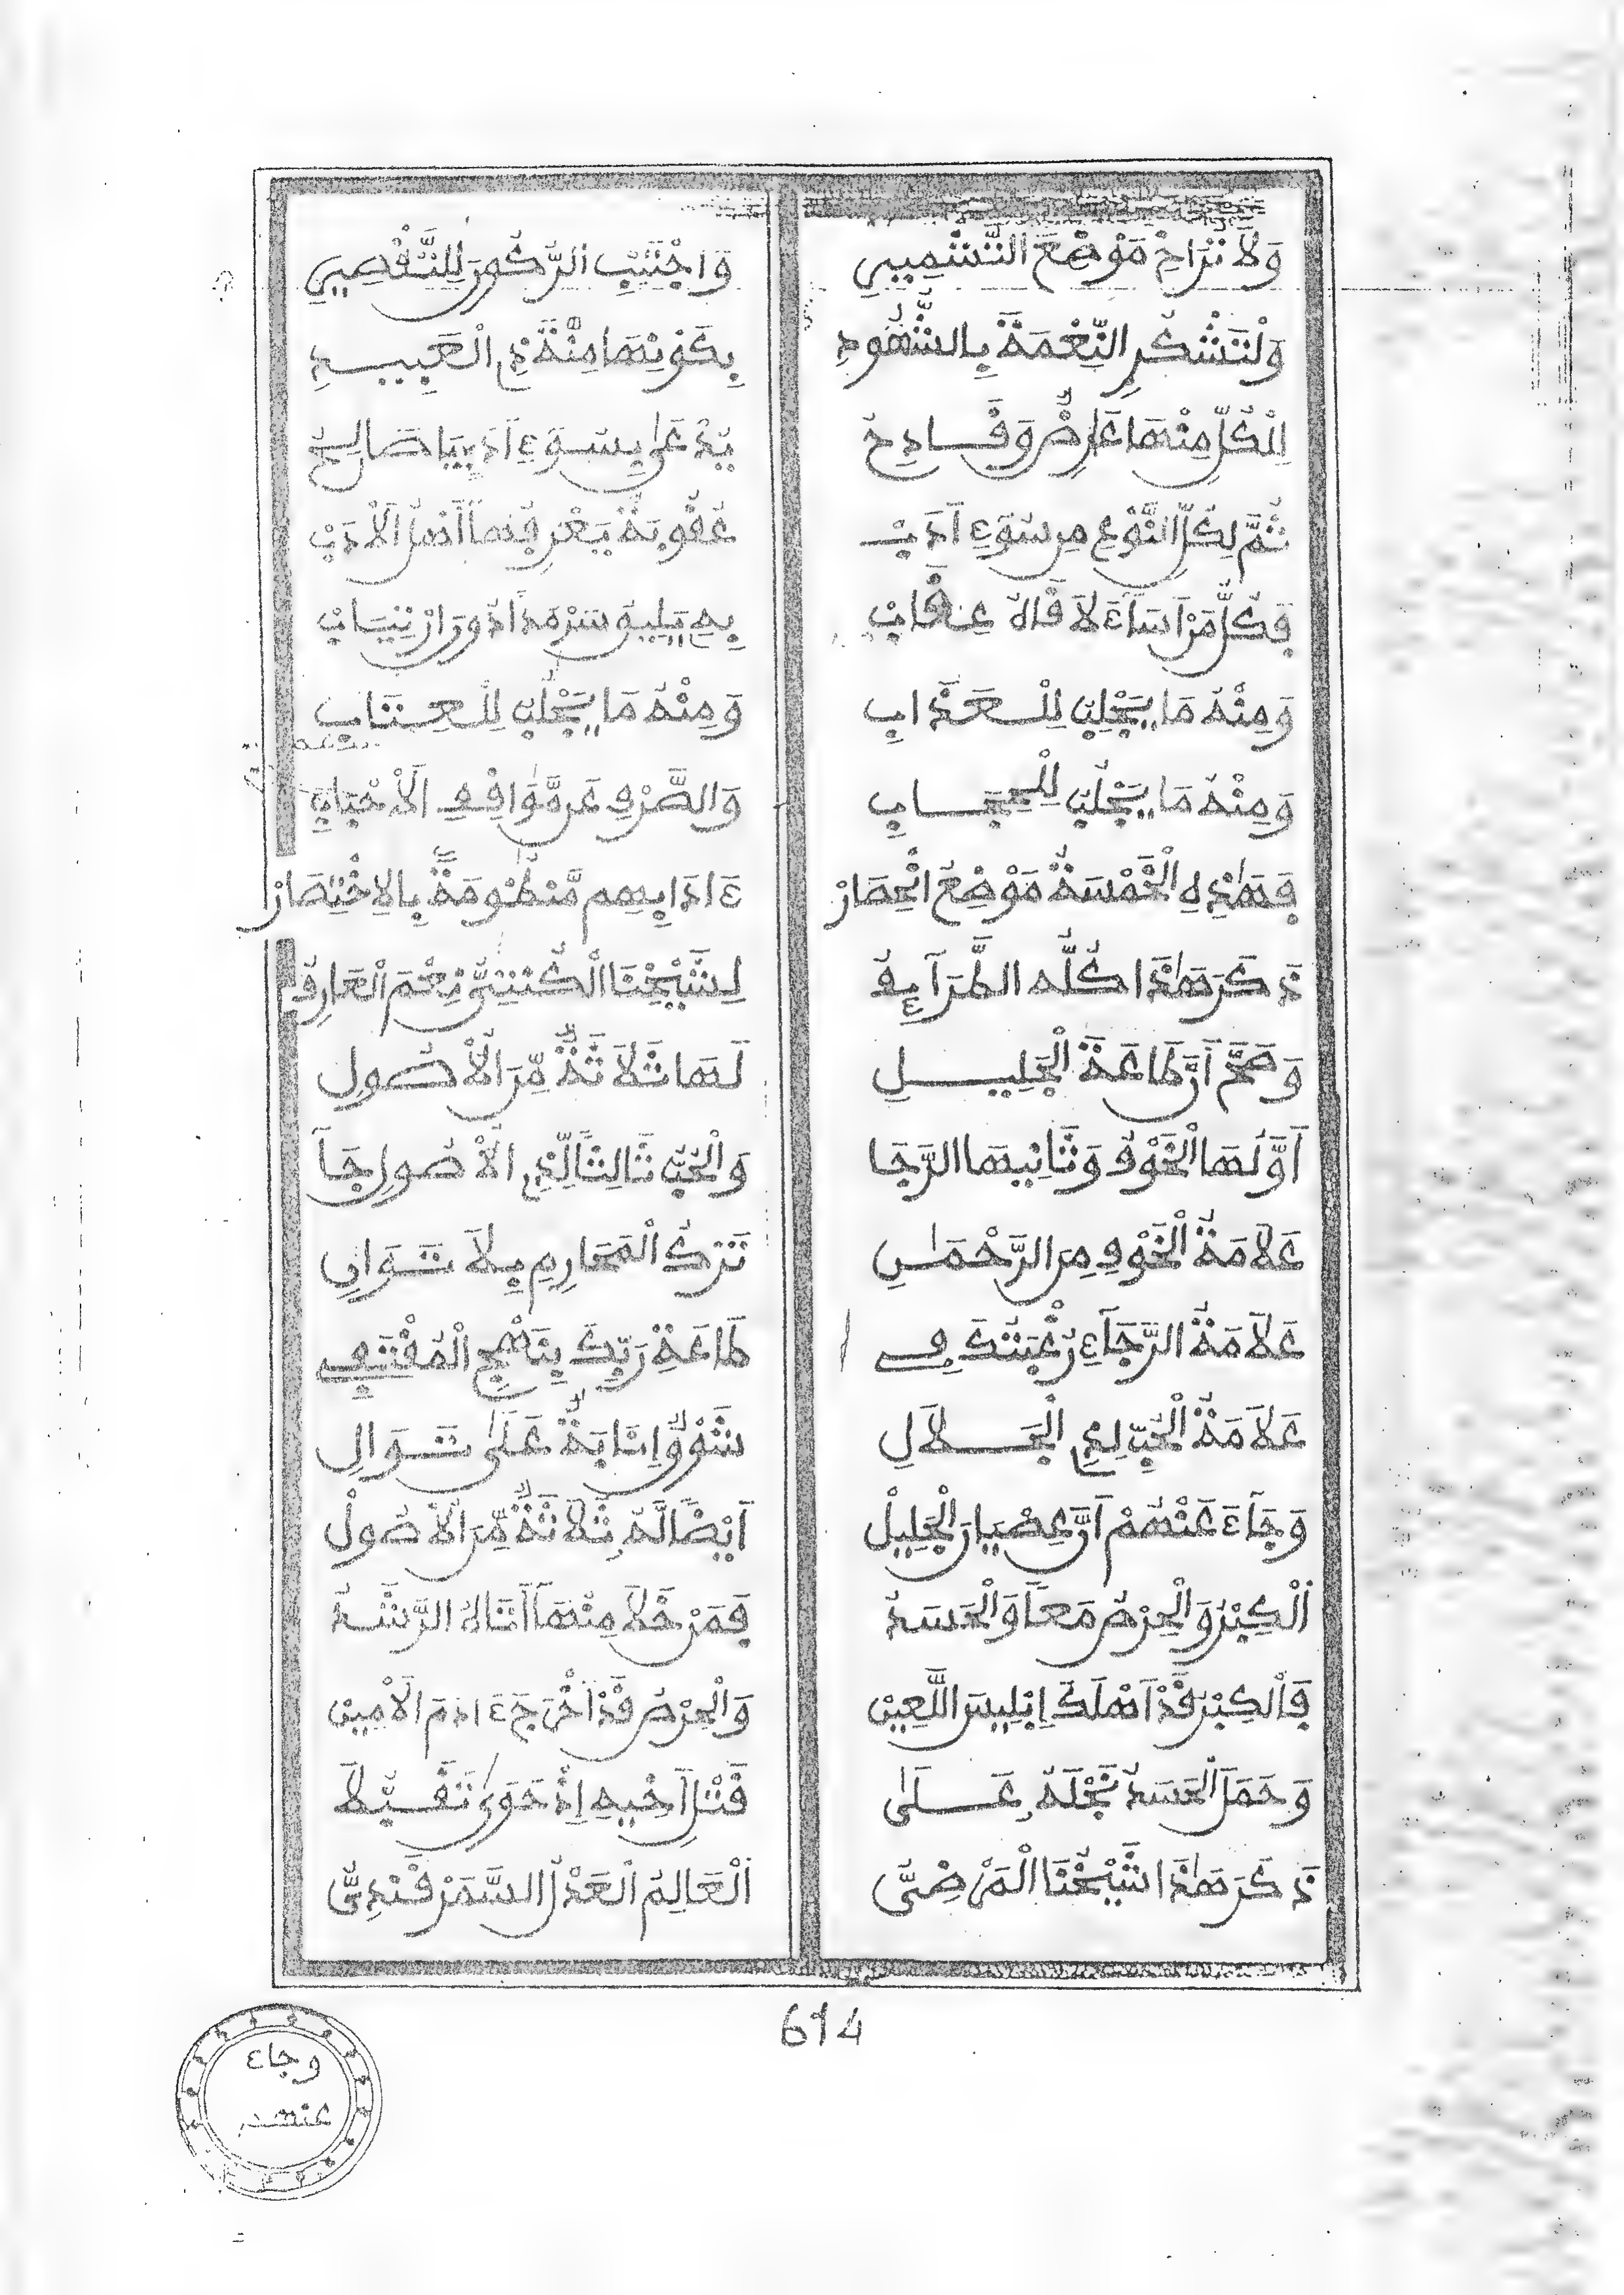 وَلَا تُرَاحِ مَوْضِعَ التَّشْمِيرِ وَاجْتَنِبِ الرُّكُونَ لِلتَّقْصِيرِ
وَلْتَشْكُرِ النِّعْمَةَ بِالشُّهُودِ بِكَوْنِهَا مِنَّةَ ذِي الْعَبِيدِ
لِلْكُلِّ مِنْهَا عَارِضٌ وَقَادِحُ يُدْعَى بِسُوءِ أَدَبٍ يَا صَالِحُ
ثُمَّ لِكُلِّ النَّوْعِ مِن سُوءِ أَدَبْ عُقُوبَةٌ يَعْرِفُهَا أَهْلُ الْأَدَبْ
فَكُلُّ مَنْ أَسَاءَ لَاقَاهُ عِقَابْ بِهِ يَلِيقُ سَرْمَدًا دُونَ ارْتِيَابْ
وَمِنْهُ مَا يُجْلَبُ لِلْعَذَابِ وَمِنْهُ مَا يُجْلَبُ لِلْعِتَابِ
وَمِنْهُ مَا يُجْلَبُ لِلْحِجَابِ وَالصَّرْفِ عَن مَّوَاقِفِ الْأَحْبَابِ
فَهَذِهِ الْخَمْسَةُ مَوْضِعُ انْحِصَارْ ءَادَابِهِم مَّنْظُومَةً بِالِاخْتِصَارْ
ذَكَرَ هَذَا كُلَّهُ الطَّرَآئِفُ لِشَيْخِنَا الْكُنْتِيِّ نِعْمَ الْعَارِفُ
وَصَحَّ أَنَّ طَاعَةَ الْجَلِيلِ لَهَا ثَلَاثَةٌ مِّنَ الْأُصُولِ
أَوَّلُهَا الْخَوْفُ وَثَانِيهَا الرَّجَا وَالْحُبُّ ثَالِثًا لِّذِي الْأُصُولِ جَآ
عَلَامَةُ الْخَوْفِ مِنَ الرَّحْمَٰنِ تَرْكُ الْمَحَارِمِ بِلَا تَوَانِي
عَلَامَةُ الرَّجَآءِ رُغْبَتُكَ فِي طَاعَةِ رَبِّكَ بِنَهْجِ الْمُقْتَفِي
عَلَامَةُ الْحُبِّ لِذِي الْجَلَالِ شَوْقٌ إِنَابَةٌ عَلَى تَوَالِ
وَجَآءَ عَنْهُمْ أَنَّ عِصْيَانَ الْجَلِيلْ أَيْضًا لَّهُ ثَلَاثَةٌ مِّنَ الْأُصُولْ
اَلْكِبْرُ وَالْحِرْصُ مَعًا وَالْحَسَدُ فَمَنْ خَلَا مِنْهَا أَتَاهُ الرَّشَدُ
فَالْكِبْرُ قَدْ أَهْلَكَ إِبْلِيسَ اللَّعِينْ وَالْحِرْصُ قَدْ أَخْرَجَ ءَادَمَ الْأَمِينْ
وَحَمَلَ الْحَسَدُ نَجْلَهُ عَلَى قَتْلِ أَخِيهِ إِذْ حَوَى تَقَبُّلَا
ذَكَرَ هَذَا شَيْخُنَا الْمَرْضِيُّ اَلْعَالِمُ الْعَدْلُ السَّمَرْقَنْدِيُّ
614
وجاء
عنهم